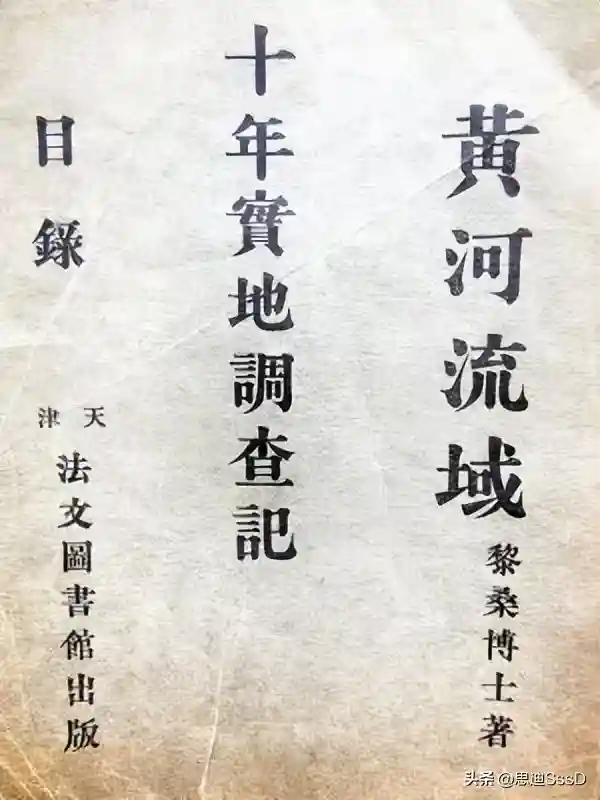 黄河流域
黎桑博士著
十年實地調查記
目錄
天津
法文圖書館出版
头条 @思迪SssD